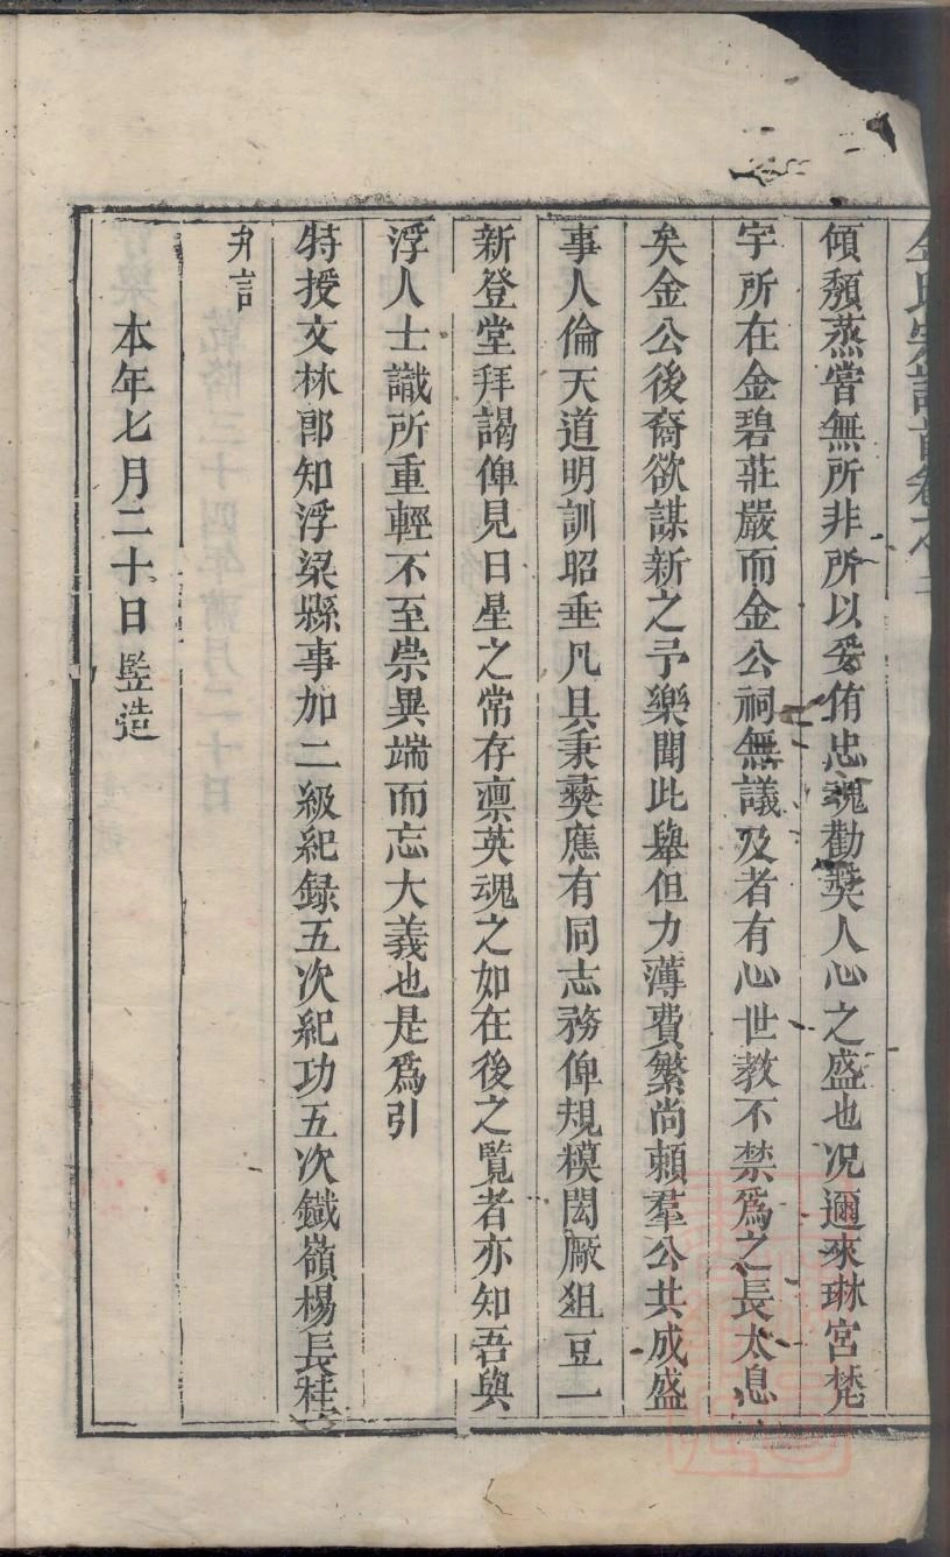 金氏宗譜首卷之
傾頽蒸嘗無所非所以妥侑忠魂勸奬人心之盛也况邇來琳宮梵
宇所在金碧莊嚴而金公祠無議及者有心世教不禁爲之長太息
矣金公後裔欲謀新之予樂聞此舉但力薄費繁尚賴羣公共成盛
事人倫天道明訓昭垂凡具秉彜應有同志務俾規模閎厰俎豆一
新登堂拜謁俾見日星之常存凛英魂之如在後之覧者亦知吾與
浮人士識所重輕不至崇異端而忘大義也是爲引
特授文林郎知浮梁縣事加二級紀録五次紀功五次鐵嶺楊長桂
弁言
本年七月二十日竪造